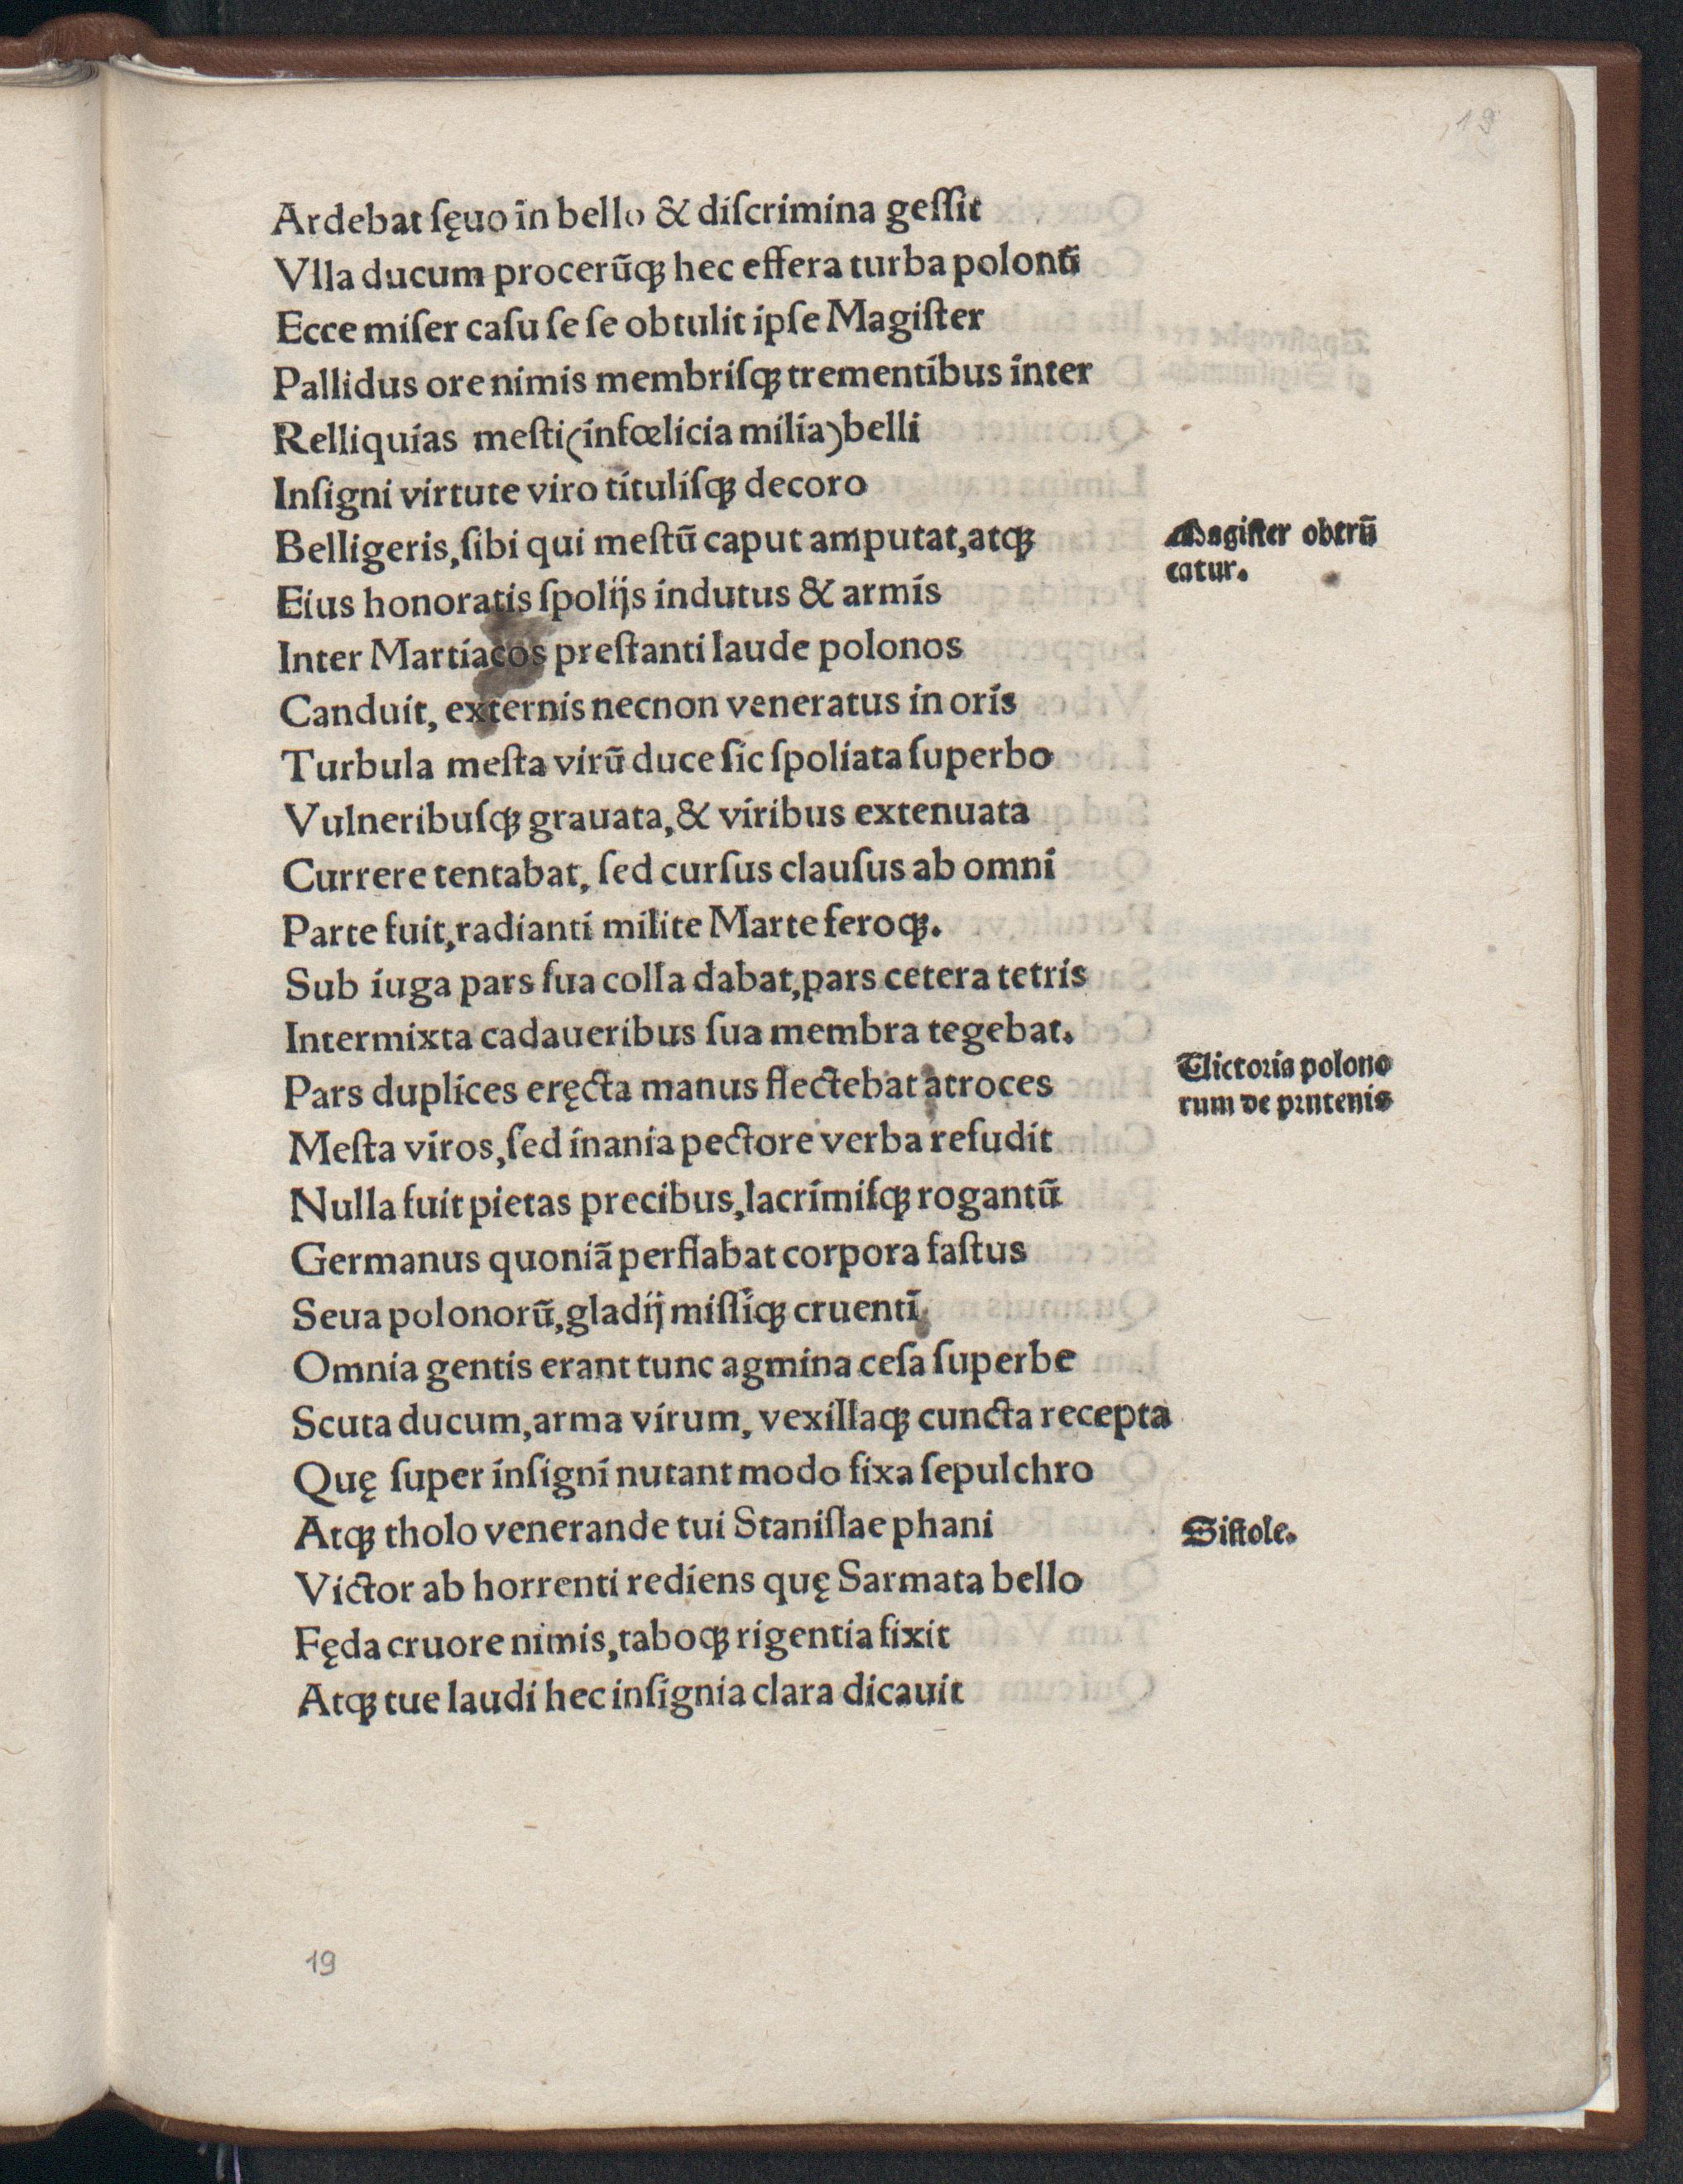 19
Ardebat ſęuo in bello & diſcrimina geſſit
Vlla ducum procerūqꝫ hec effera turba polonū
Ecce miſer caſu ſe ſe obtulit ipſe Magiſter
Pallidus ore nimis membriſqꝫ trementibus inter
Relliquias meſti (infœlicia milia) belli
Inſigni virtute viro tituliſqꝫ decoro
Belligeris, ſibi qui meſtū caput amputat, atqꝫ
Magiſter obtrū
catur.
Eius honoratis ſpolijs indutus & armis
Inter Martiacos preſtanti laude polonos
Canduit, externis necnon veneratus in oris
Turbula meſta virū duce ſic ſpoliata ſuperbo
Vulneribuſqꝫ grauata, & viribus extenuata
Currere tentabat, ſed curſus clauſus ab omni
Parte fuit, radianti milite Marte feroqꝫ.
Sub iuga pars ſua colla dabat, pars cetera tetris
Intermixta cadaueribus ſua membra tegebat.
Pars duplices eręcta manus flectebat atroces
Victoria polono
rum de prutenis
Meſta viros, ſed inania pectore verba refudit
Nulla fuit pietas precibus, lacrimiſqꝫ rogantū
Germanus quoniā perflabat corpora faſtus
Seua polonorū, gladij miſſiqꝫ cruenti,
Omnia gentis erant tunc agmina ceſa ſuperbe
Scuta ducum, arma virum, vexillaqꝫ cuncta recepta
Quę ſuper inſigni nutant modo fixa ſepulchro
Atqꝫ tholo venerande tui Staniſlae phani
Siſtole.
Victor ab horrenti rediens quę Sarmata bello
Fęda cruore nimis, taboqꝫ rigentia fixit
Atqꝫ tue laudi hec inſignia clara dicauit
19